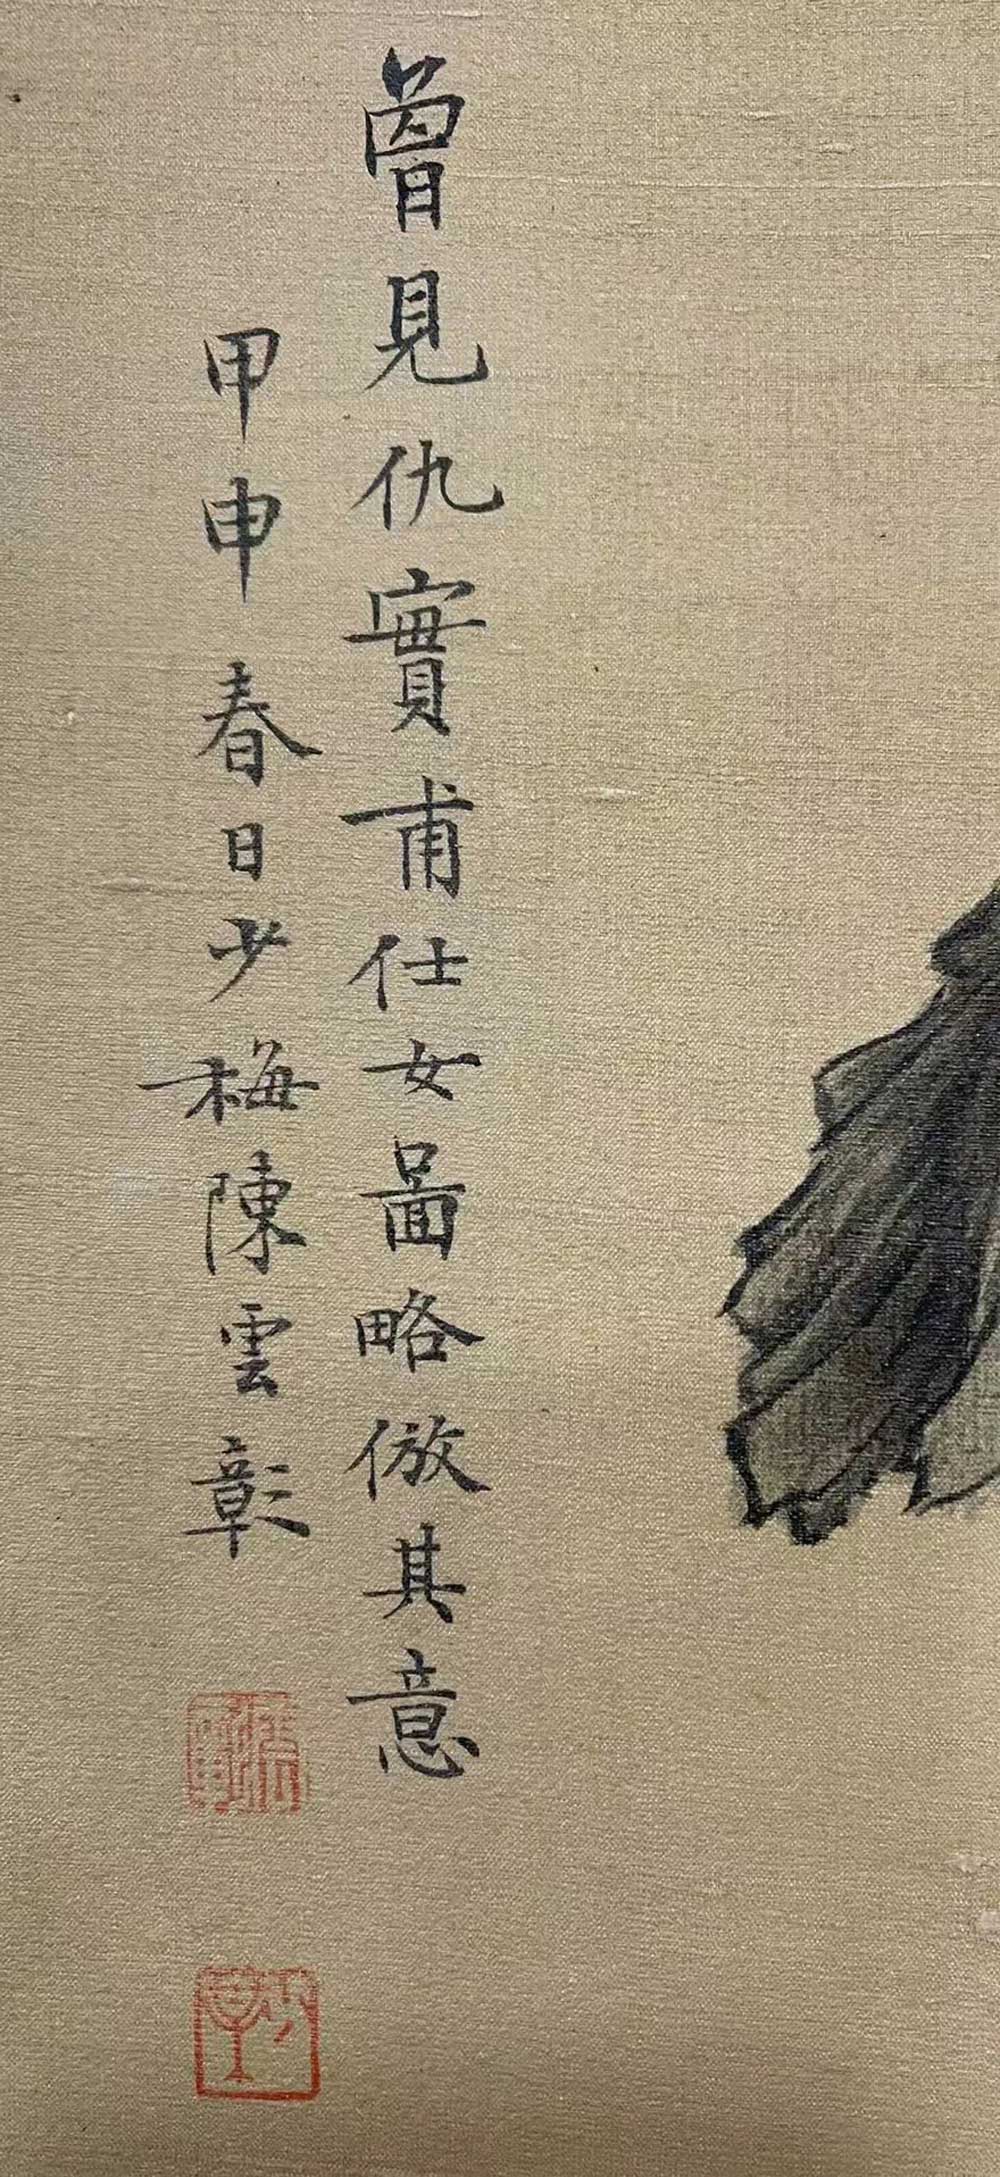 曾見仇實甫仕女啚略倣其意
甲申春日少梅陳雲彰